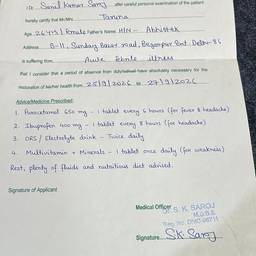 I, Dr. Sunil Kumar Saroj after careful personal examination of the patient
hereby certify that Mr/Mrs. Taruna
Age 26 Yrs / Female Father's Name H/N - Abhishek
Address B-11, Sunday Bazar road, Begampur Post Delhi-86
is suffering from Acute Febrile illness
that I consider that a period of absence from duty/school/ absolutely necessary for the
restoration of his/her health from 25/9/2026 to 27/9/2026
Advice/Medicine Prescribed:
1. Paracetamol 650 mg - 1 tablet every 6 hours (for fever & headache)
2. Ibuprofen 400 mg - 1 tablet every 8 hours (for headache)
3. ORS / Electrolyte drink - Twice daily
4. Multivitamin + Minerals - 1 tablet once daily (for weakness)
Rest, plenty of fluids and nutritious diet advised.
Signature of Applicant
Medical Officer
Dr. S. K. SAROJ
M.B.B.S
Reg. No.
Signature SK Saroj